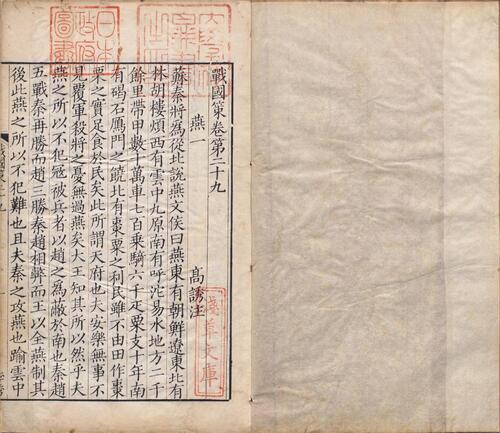 戰國策卷第二十九
燕一
高誘注
蘇秦將爲從北說燕文侯曰燕東有朝鮮遼東北有
林胡樓煩西有雲中九原南有呼沱易水地方二千
餘里帶甲數十萬車七百乘騎六千疋粟支十年南
有碣石鴈門之饒北有棗粟之利民雖不由田作棗
栗之實足食於民矣此所謂天府也夫安樂無事不
見覆軍殺將之憂無過燕矣大王知其所以然乎夫
燕之所以不犯寇被兵者以趙之爲蔽於南也秦趙
五戰秦再勝而趙三勝秦趙相弊而王以全燕制其
後此燕之所以不犯難也且夫秦之攻燕也踰雲中
淺草文庫
日本
政府
圖書